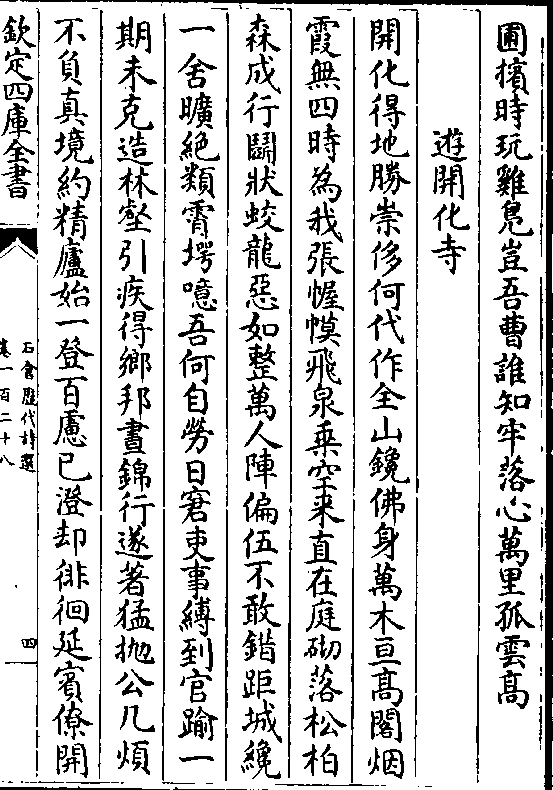 圃擯時玩雞鳧豈吾曹誰知牢落心萬里孤雲高
遊開化寺
開化得地勝崇侈何代作全山鑱佛身萬木亘髙閣烟
霞無四時為我張幄幙飛泉乗空来直在庭砌落松柏
森成行鬬狀蛟龍惡如整萬人陣偏伍不敢錯距城纔
一舍曠絶類霄堮噫吾何自勞日窘吏事縛到官踰一
期未克造林壑引疾得鄉邦晝錦行遂著猛抛公几煩
不負真境約精廬始一登百慮已澄却徘徊延賓僚開
欽定四庫全書
石倉歴代詩選
卷一百二十八
四